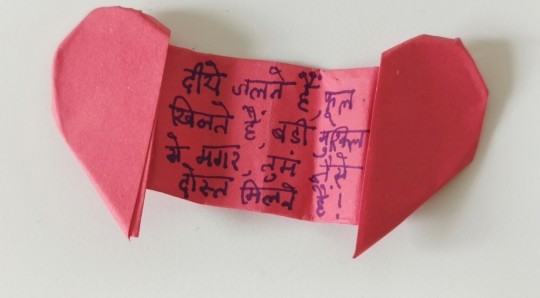 दीये जलते हैं फूल
खिलते हैं, बडी मुश्किल
मगर,
दोस्त मिलते